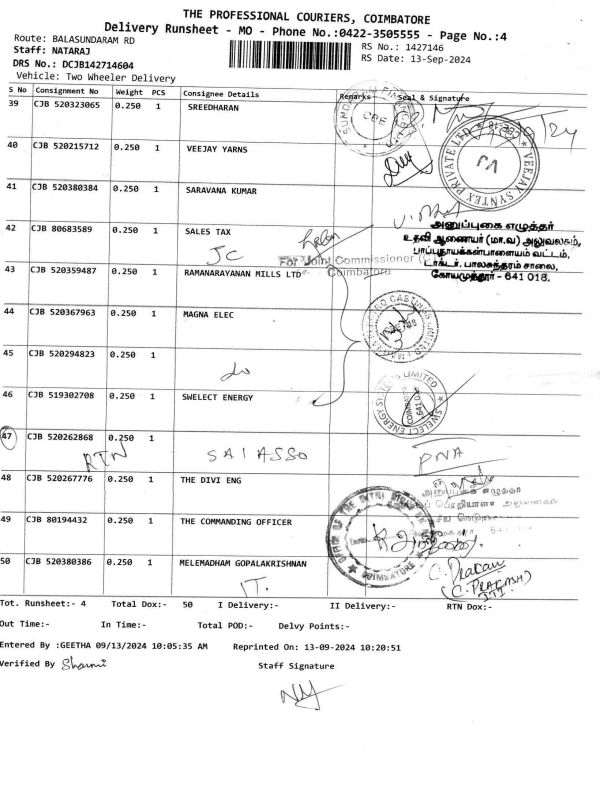 THE PROFESSIONAL COURIERS, COIMBATORE
Delivery Runsheet - MO - Phone No.:0422-3505555 - Page No.:4
Route: BALASUNDARAM RD
RS No.: 1427146
Staff: NATARAJ
RS Date: 13-Sep-2024
DRS No.: DCJB142714604
Vehicle: Two Wheeler Delivery
S No Consignment No Weight PCS Consignee Details Remarks Seal & Signature
39 CJB 520323065 0.250 1 SREEDHARAN
CBE
40 CJB 520215712 0.250 1 VEEJAY YARNS
VEEJAY SYNTEX PRIVATE LTD
41 CJB 520380384 0.250 1 SARAVANA KUMAR
அனுப்புகை எழுத்தர்
42 CJB 80683589 0.250 1 SALES TAX
உதவி ஆணையர் (மா.வ) அலுவலகம்,
பாப்புநாயக்கன்பாளையம் வட்டம்,
JC
For Joint Commissioner
டாக்டர். பாலசுந்தரம் சாலை,
43 CJB 520359487 0.250 1 RAMANARAYANAN MILLS LTD
Coimbatore
கோயமுத்தூர் - 641 018.
44 CJB 520367963 0.250 1 MAGNA ELEC
45 CJB 520294823 0.250 1
do
46 CJB 519302708 0.250 1 SWELECT ENERGY
SWELECT ENERGY SYSTEMS LIMITED
COIMBATORE
47 CJB 520262868 0.250 1
RTN SAI ASSO PNA
48 CJB 520267776 0.250 1 THE DIVI ENG
49 CJB 80194432 0.250 1 THE COMMANDING OFFICER
COIMBATORE
50 CJB 520380386 0.250 1 MELEMADHAM GOPALAKRISHNAN
IT.
C. Prakash
(C. PRAKASH)
ITI
Tot. Runsheet:- 4 Total Dox:- 50 I Delivery:- II Delivery:- RTN Dox:-
Out Time:- In Time:- Total POD:- Delvy Points:-
Entered By :GEETHA 09/13/2024 10:05:35 AM Reprinted On: 13-09-2024 10:20:51
Verified By Sharmi Staff Signature